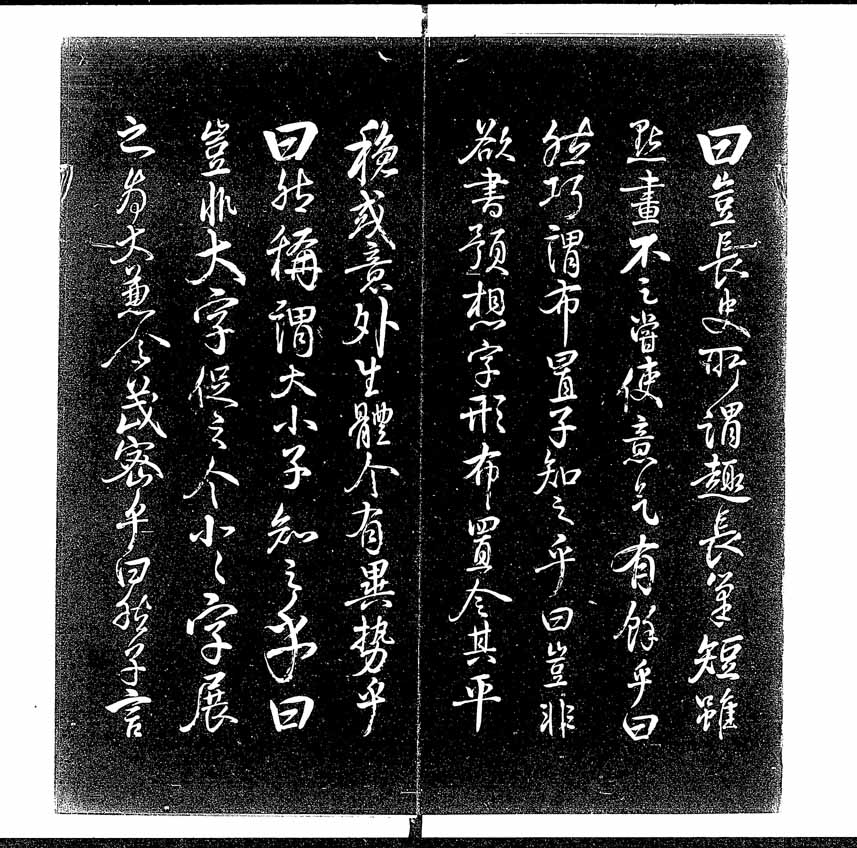 曰豈長史所謂趣長筆短雖
點畫不足嘗使意氣有餘乎曰
然巧謂布置子知之乎曰豈非
欲書預想字形布置令其平
穩或意外生體令有異勢乎
曰然稱謂大小子知之乎曰
豈非大字促之令小〻字展
之為大兼令茂密乎曰然子言